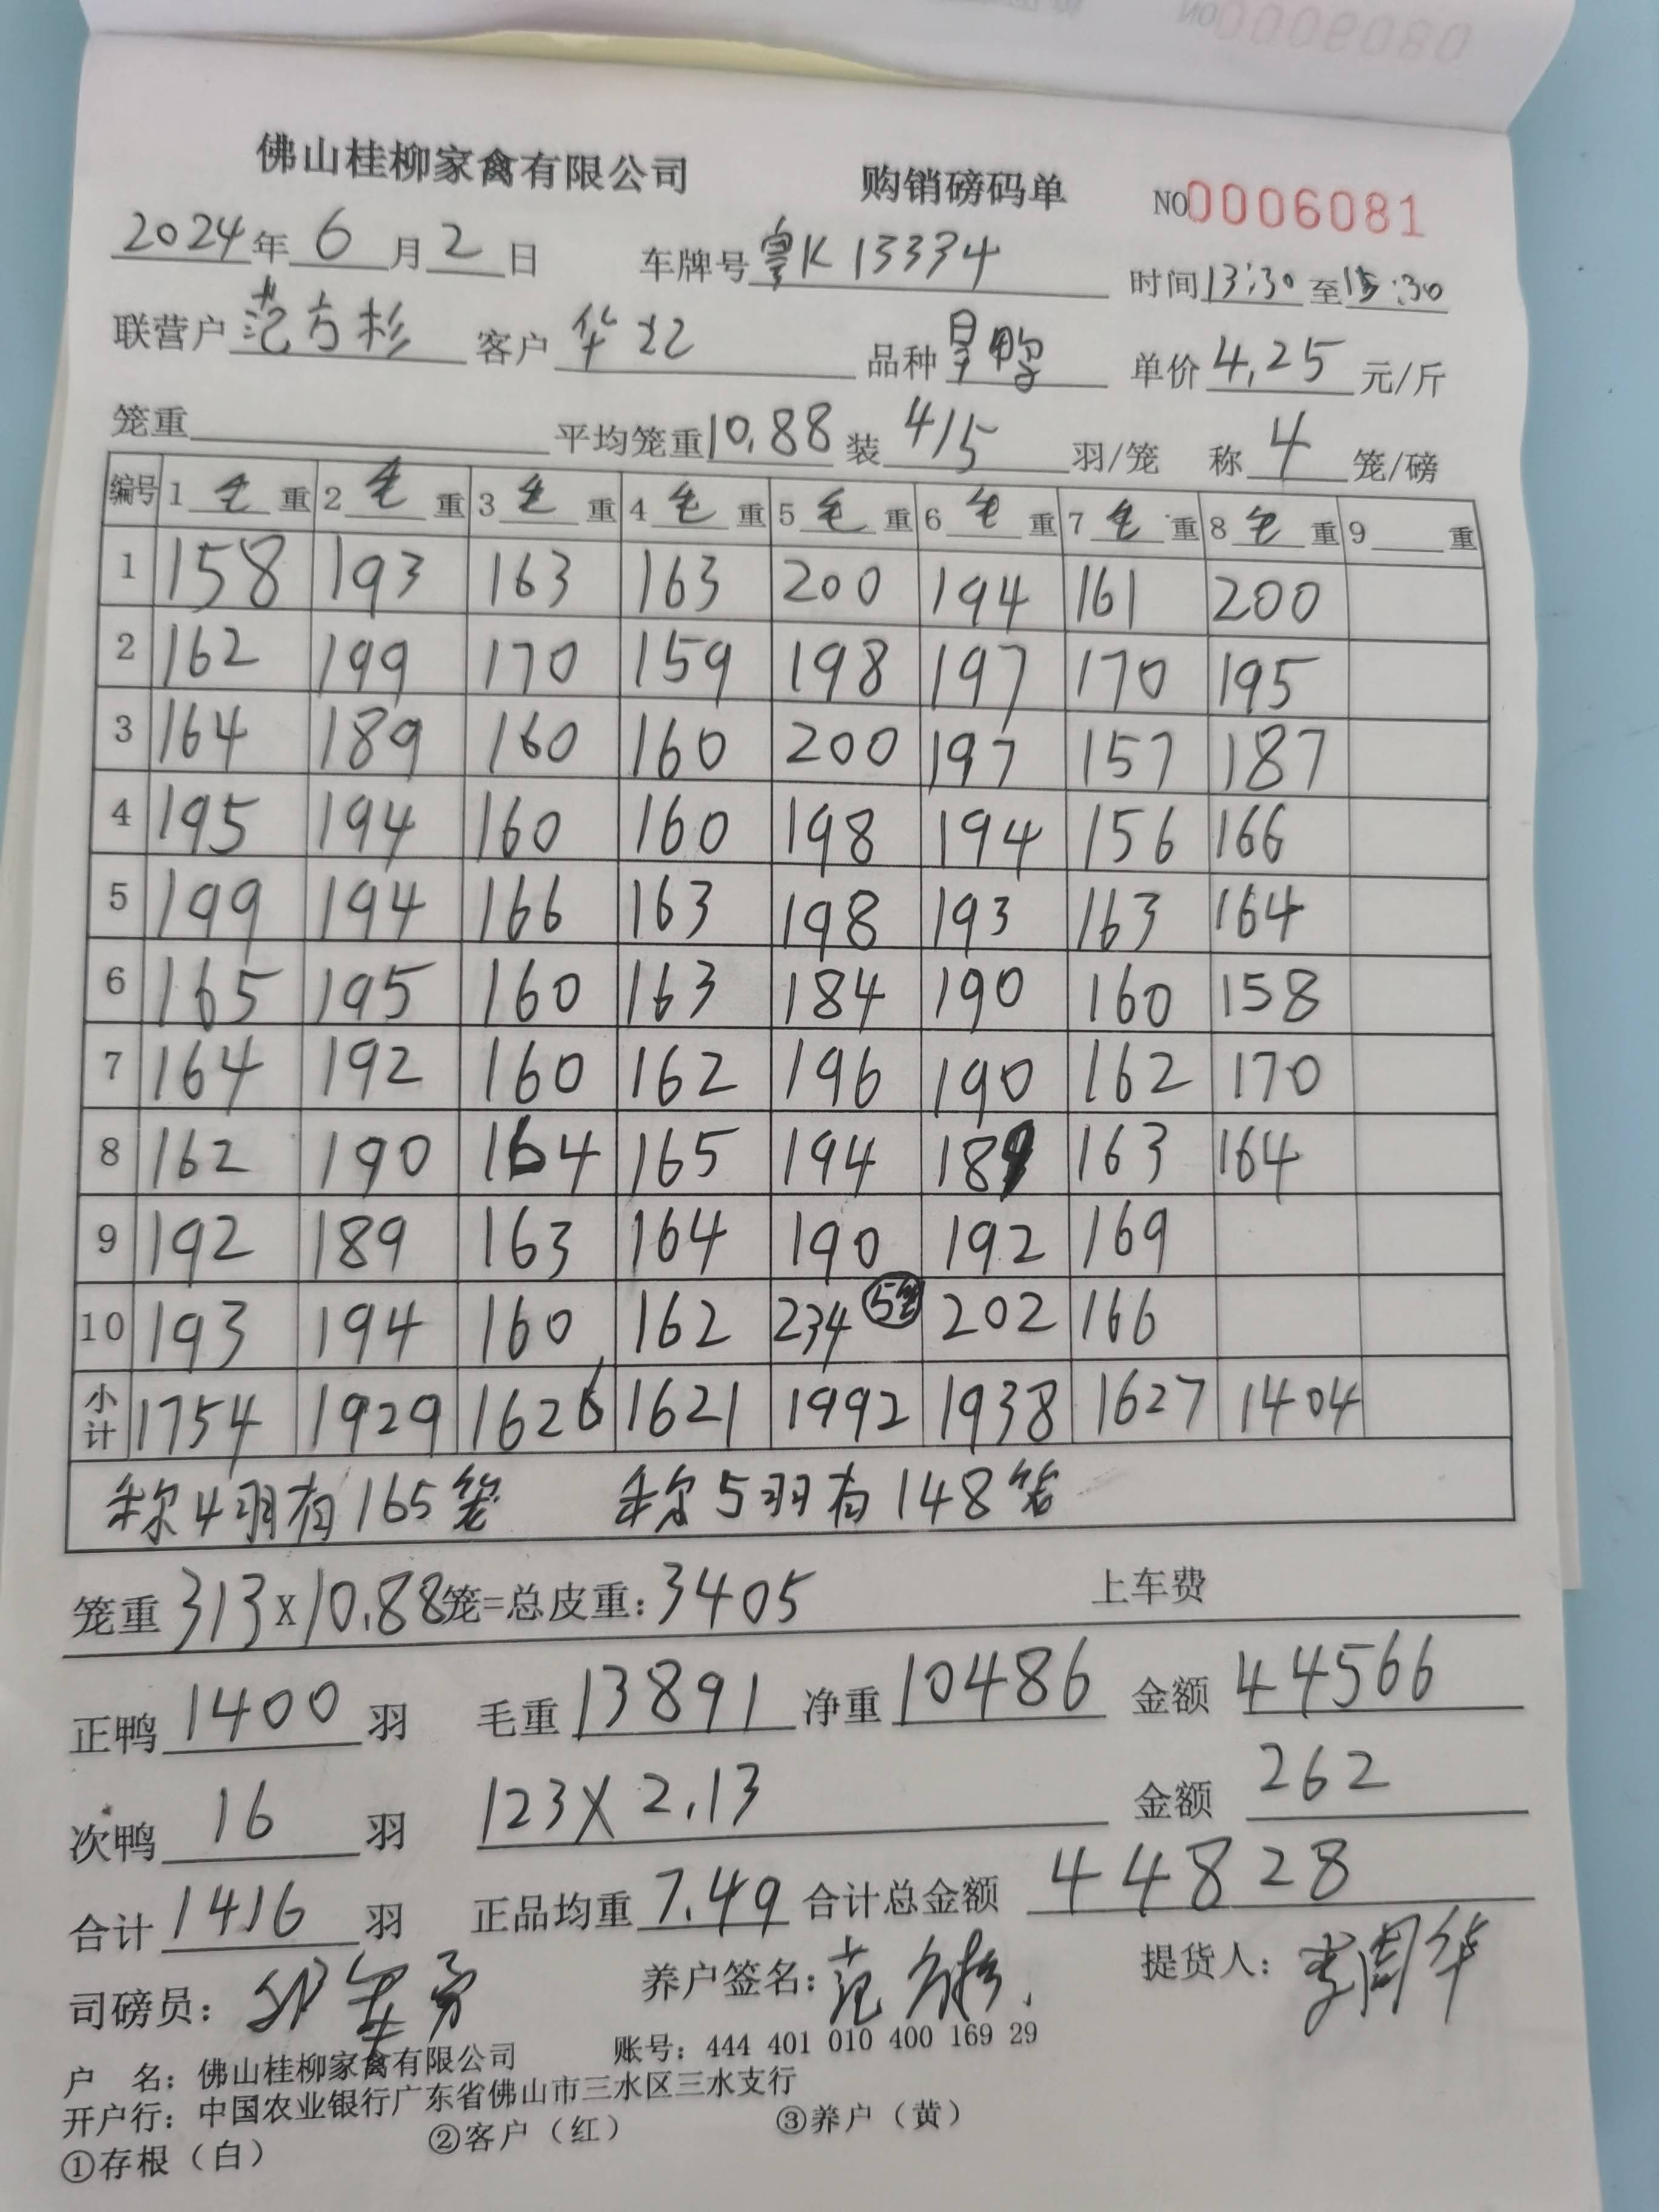 NO0006080
佛山桂柳家禽有限公司 购销磅码单 NO0006081
2024年 6 月 2 日 车牌号 粤K 13334 时间 13:30 至 15:30
联营户 范方杉 客户 华记 品种 旱鸭 单价 4.25 元/斤
笼重 平均笼重 10.88 装 4/5 羽/笼 称 4 笼/磅
编号 1 毛 重 2 毛 重 3 毛 重 4 毛 重 5 毛 重 6 毛 重 7 毛 重 8 毛 重 9 重
1 158 193 163 163 200 194 161 200
2 162 199 170 159 198 197 170 195
3 164 189 160 160 200 197 157 187
4 195 194 160 160 198 194 156 166
5 199 194 166 163 198 193 163 164
6 165 195 160 163 184 190 160 158
7 164 192 160 162 196 190 162 170
8 162 190 164 165 194 189 163 164
9 192 189 163 164 190 192 169
10 193 194 160 162 234 5笼 202 166
小计 1754 1929 1626 1621 1992 1938 1627 1404
称4羽有165笼 称5羽有148笼
笼重 313 x 10.88 笼=总皮重: 3405 上车费
正鸭 1400 羽 毛重 13891 净重 10486 金额 44566
次鸭 16 羽 123 X 2.13 金额 262
合计 1416 羽 正品均重 7.49 合计总金额 44828
司磅员: 养户签名: 范方杉 提货人: 李周华
户 名: 佛山桂柳家禽有限公司 账号: 444 401 010 400 169 29
开户行: 中国农业银行广东省佛山市三水区三水支行
①存根（白） ②客户（红） ③养户（黄）